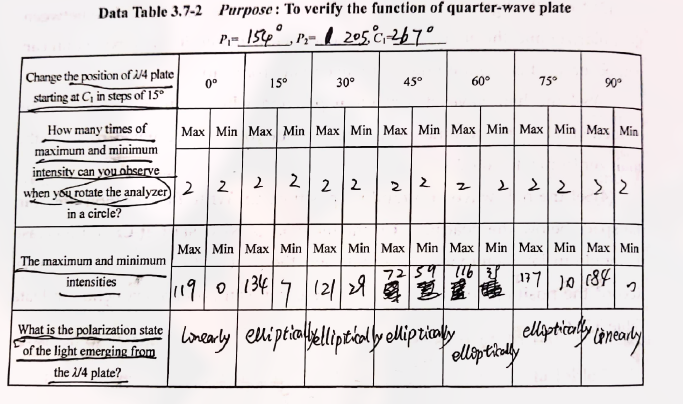 Data Table 3.7-2 Purpose: To verify the function of quarter-wave plate
P₁= 154° , P₂= 205°, C₁=267°
Change the position of λ/4 plate starting at C₁ in steps of 15° 0° 15° 30° 45° 60° 75° 90°
How many times of maximum and minimum intensity can you observe when you rotate the analyzer in a circle?
Max Min Max Min Max Min Max Min Max Min Max Min Max Min
2 2 2 2 2 2 2 2 2 2 2 2 2 2
The maximum and minimum intensities
Max Min Max Min Max Min Max Min Max Min Max Min Max Min
119 0 134 7 121 29 72 59 116 137 10 184
What is the polarization state of the light emerging from the λ/4 plate?
Linearly elliptically elliptically elliptically elliptically elliptically linearly